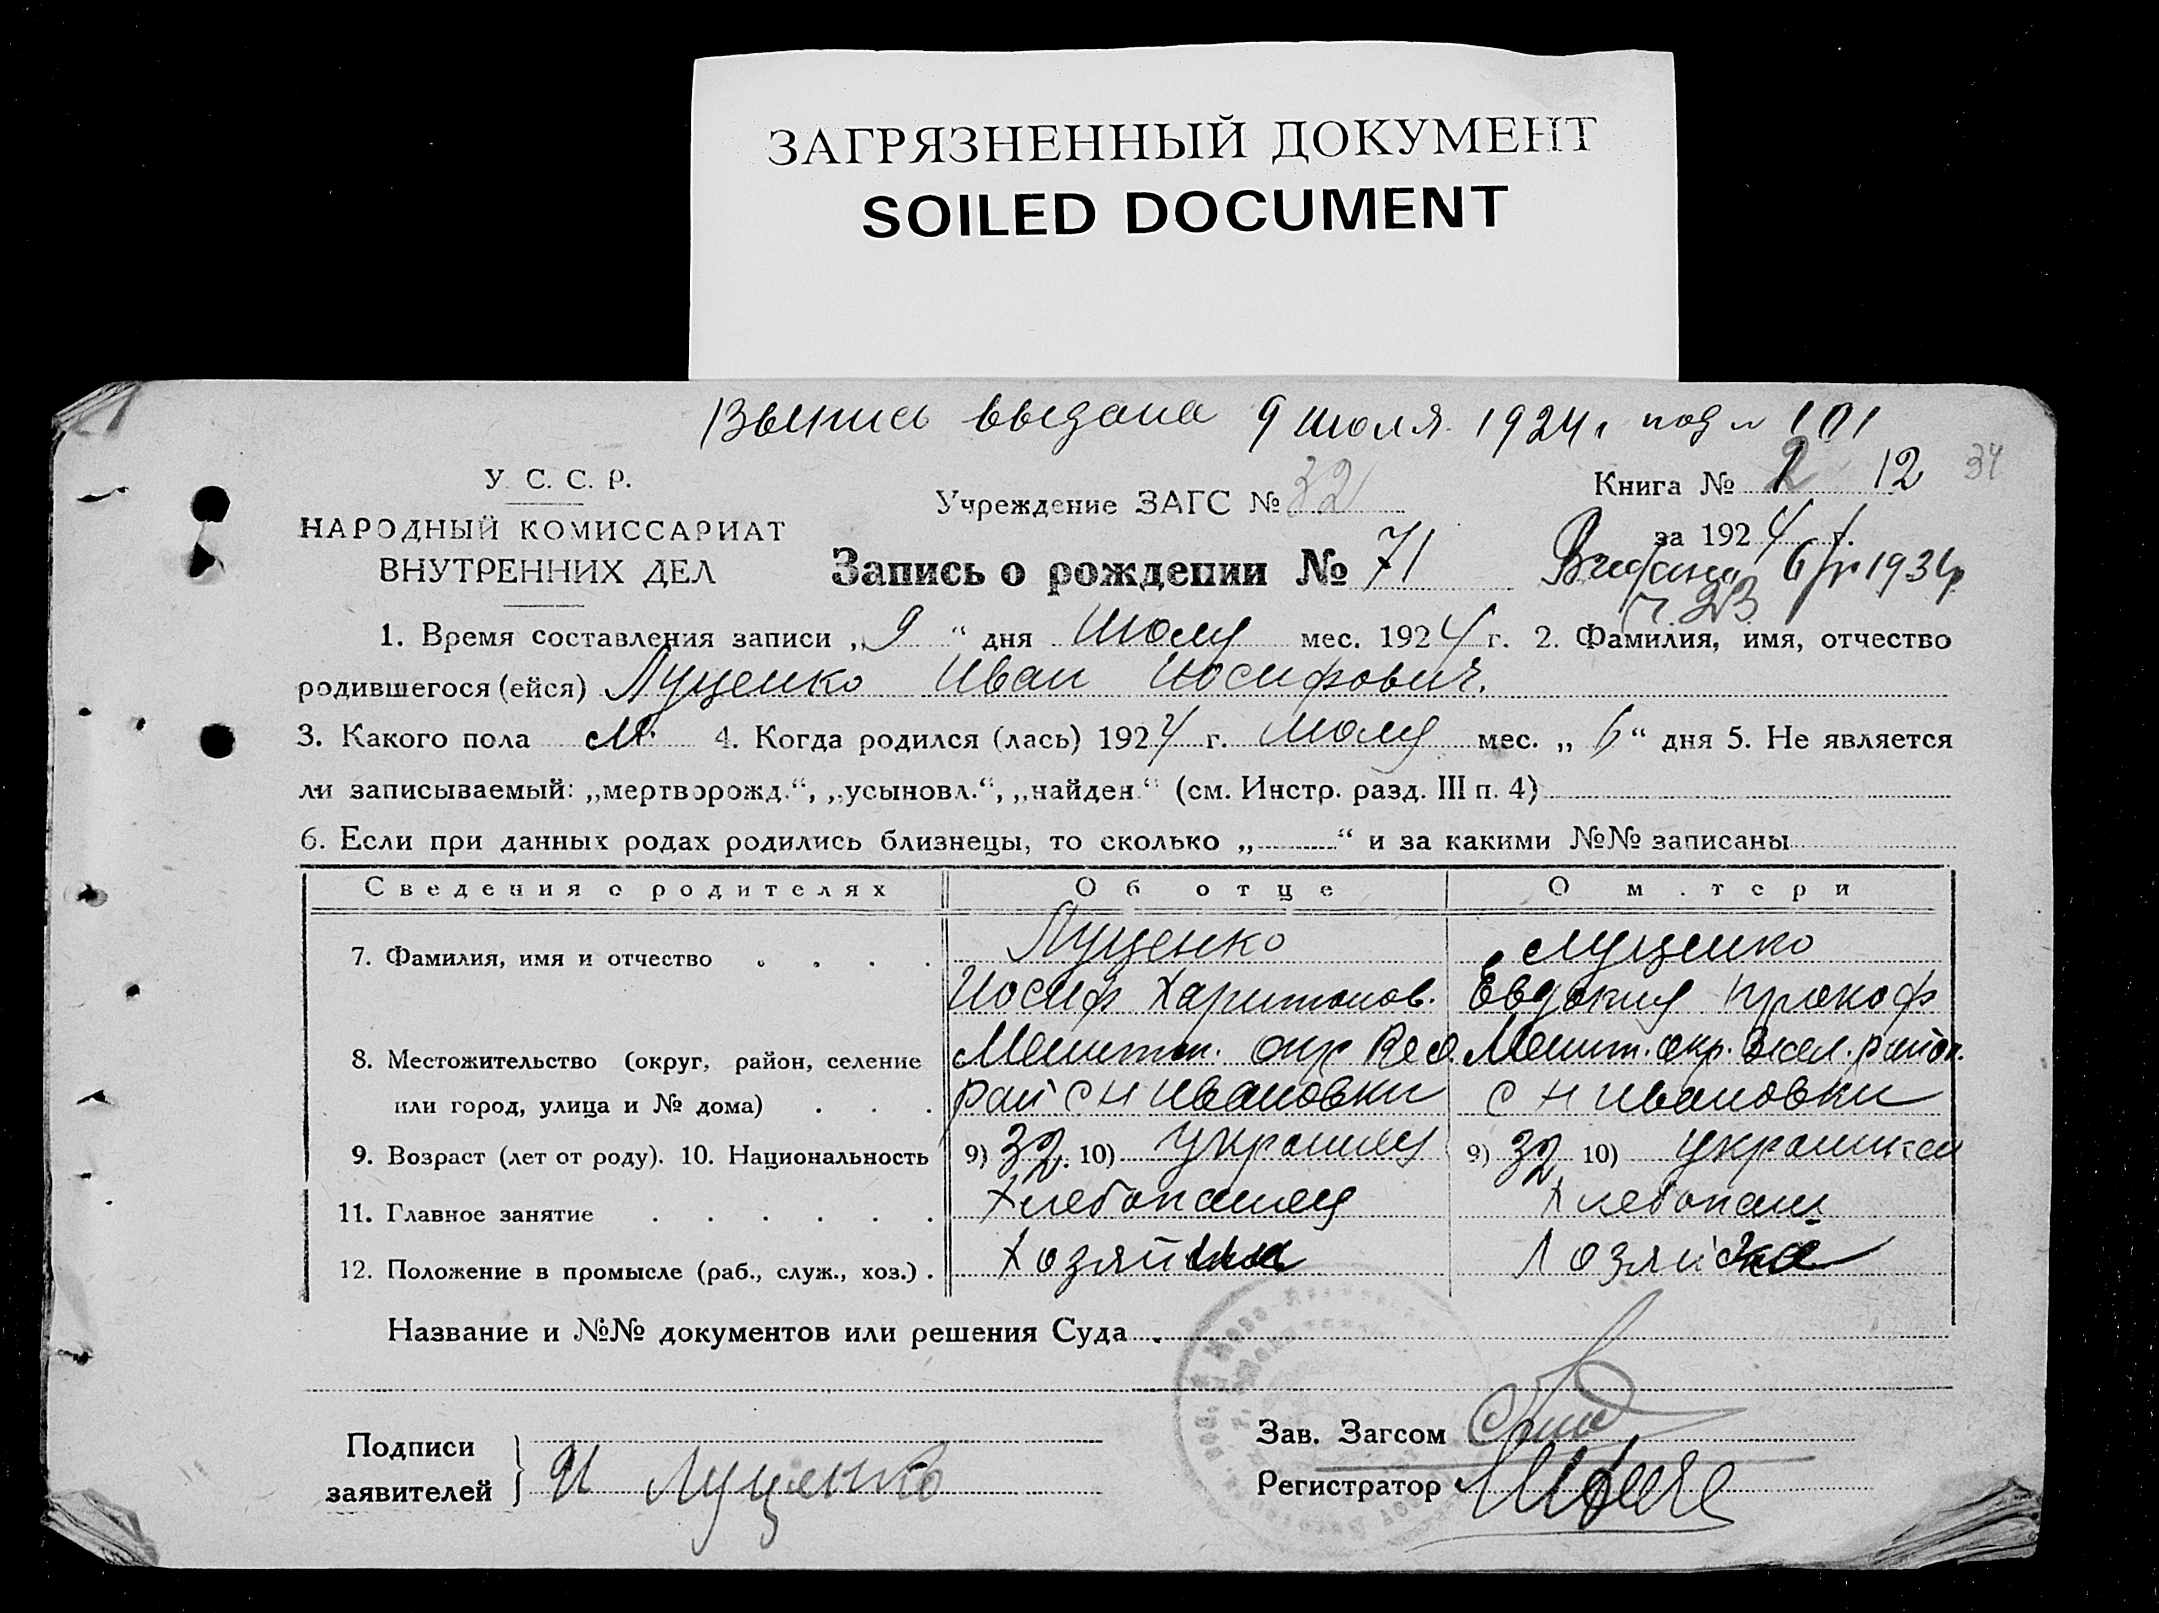 ЗАГРЯЗНЕННЫЙ ДОКУМЕНТ
SOILED DOCUMENT
Выпись выдана 9 июля 1924 г под N 101
У. С. С. Р.
НАРОДНЫЙ КОМИССАРИАТ
ВНУТРЕННИХ ДЕЛ
Учреждение ЗАГС № 32
Книга № 2 12 34
за 1924 г.
Запись о рождении № 71
1934р
1. Время составления записи „9“ дня Июля мес. 1924 г. 2. Фамилия, имя, отчество
родившегося (ейся) Луценко Иван Иосифович.
3. Какого пола М. 4. Когда родился (лась) 1924 г. Июля мес. „6“ дня 5. Не является
ли записываемый: „мертворожд.“, „усыновл.“, „найден.“ (см. Инстр. разд. III п. 4)
6. Если при данных родах родились близнецы, то сколько „ “ и за какими №№ записаны
Сведения о родителях Об отце О м.тери
7. Фамилия, имя и отчество . . . . Луценко Луценко
Иосиф Харитонов. Евдокия Прокоф
8. Местожительство (округ, район, селение Мелитт. окр Вес. Мелит. окр. Весел. район.
или город, улица и № дома) . . . рай с Н Ивановки с Н Ивановки
9. Возраст (лет от роду). 10. Национальность 9) 32. 10) украинец 9) 32 10) украинка
11. Главное занятие . . . . . . Хлебопашец Хлебопаш
12. Положение в промысле (раб., служ., хоз.) . Хозяин Хозяйка
Название и №№ документов или решения Суда .
Подписи
заявителей } И Луценко
Зав. Загсом
Регистратор